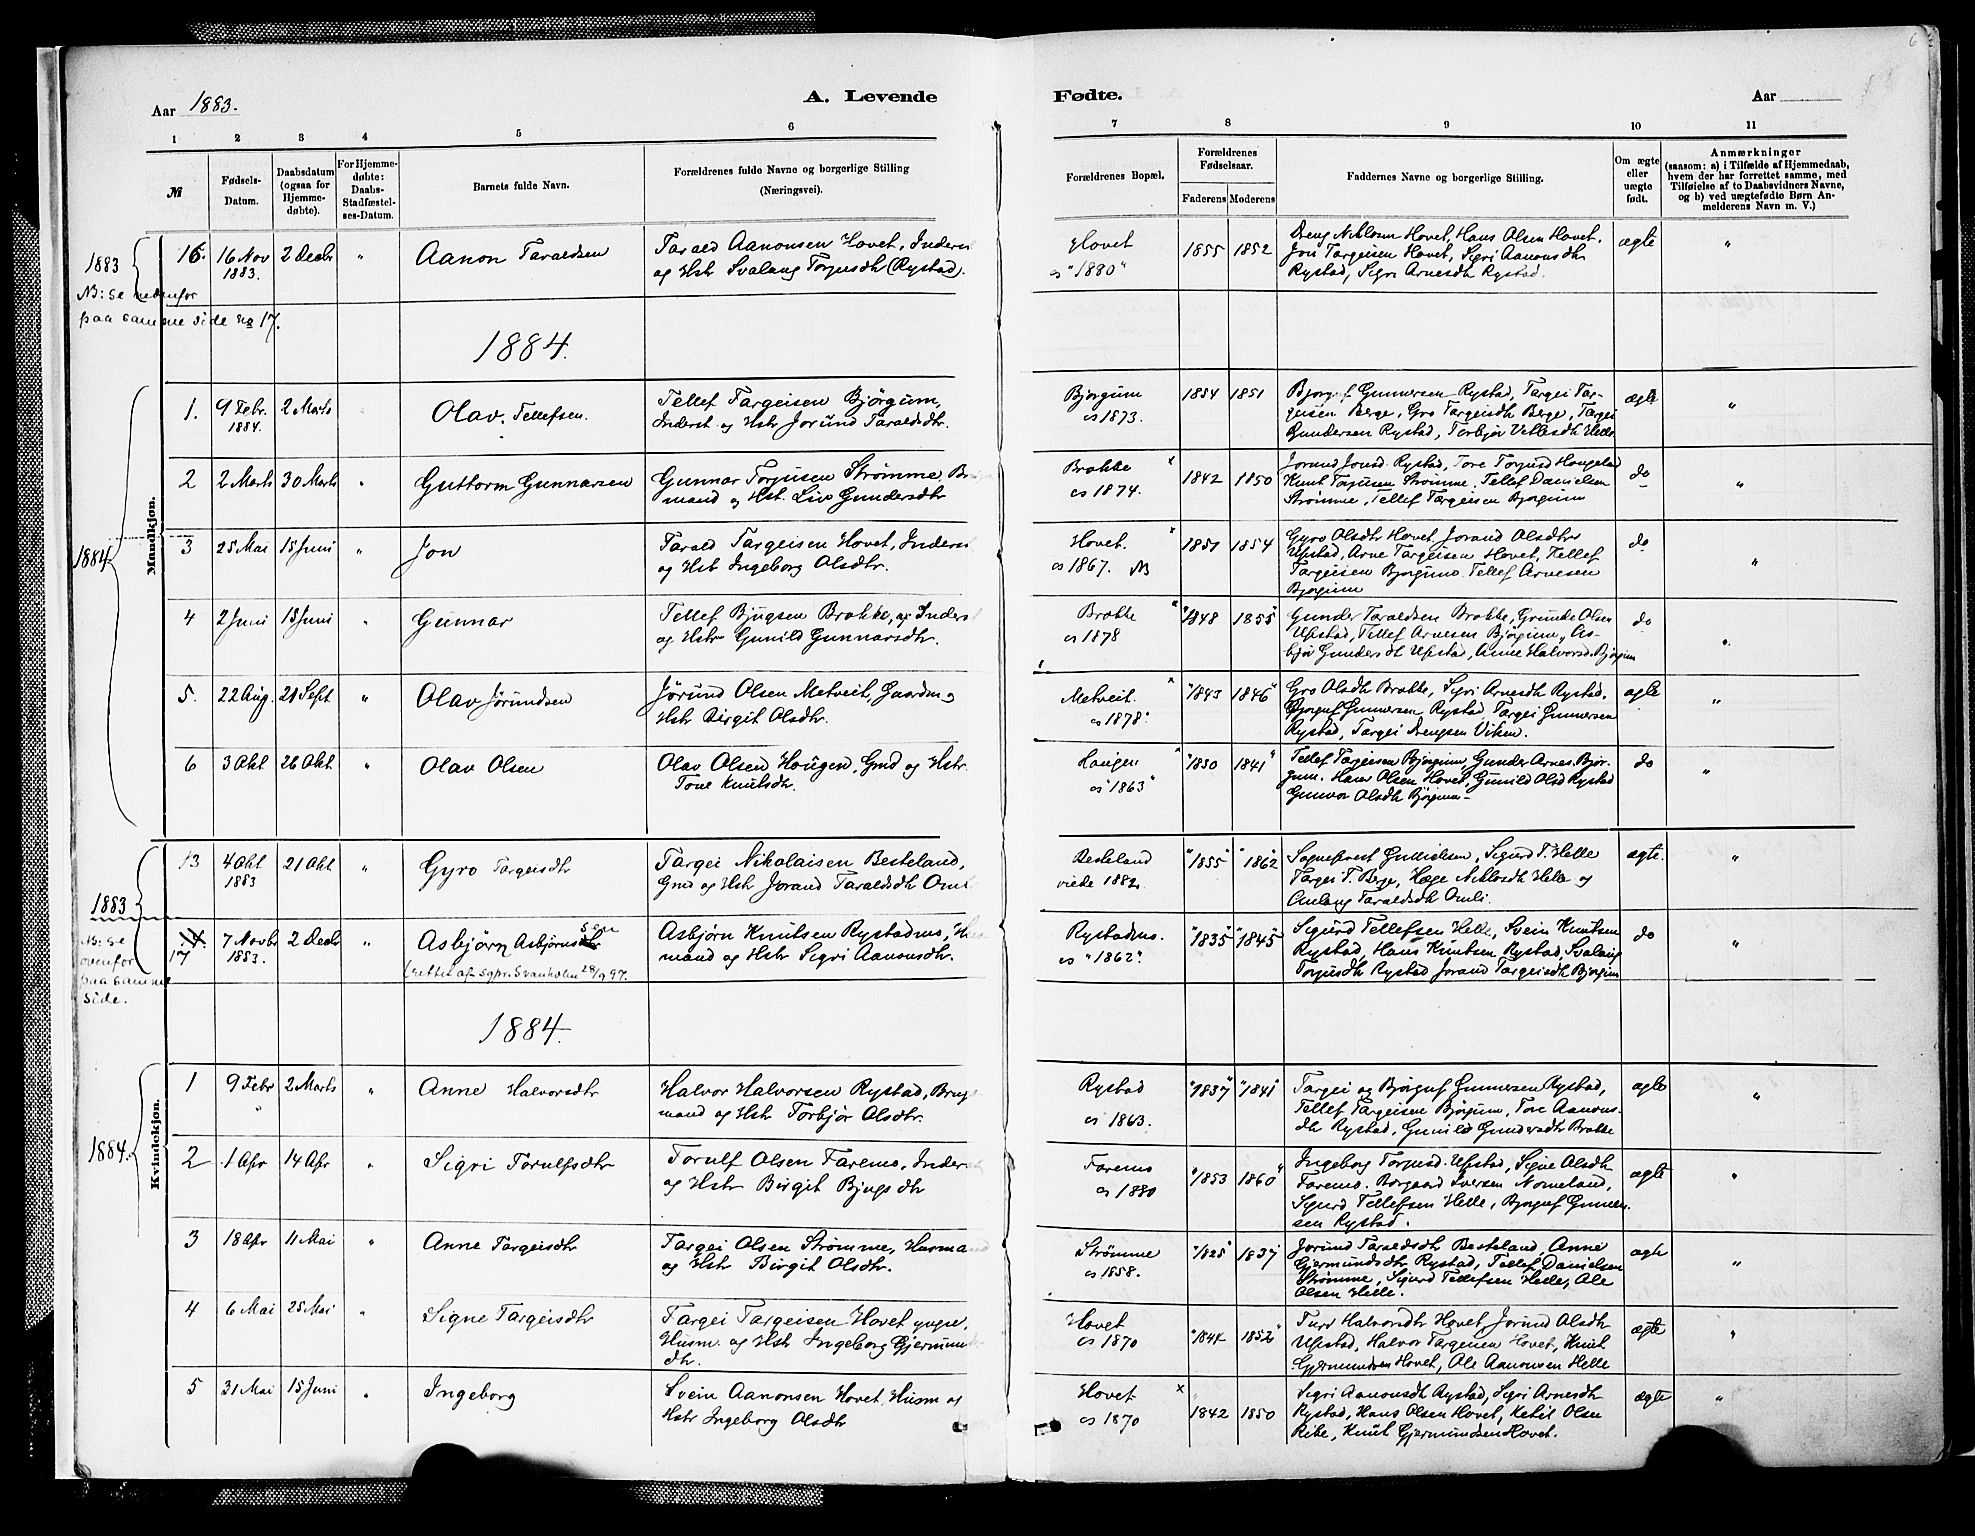 Aar 1883.
A. Levende
Fødte.
Aar
1 2 3 4 5 6 7 8 9 10 11
№
Fødsels-Datum.
Daabsdatum (ogsaa for Hjemmedøbte).
For Hjemmedøbte: Daabs-Stadfæstelses-Datum.
Barnets fulde Navn.
Forældrenes fulde Navne og borgerlige Stilling (Næringsvei).
Forældrenes Bopæl.
Forældrenes Fødselsaar.
Faderens Moderens
Faddernes Navne og borgerlige Stilling.
Om ægte eller uægte født.
Anmærkninger
(saasom: a) i Tilfælde af Hjemmedaab,
hvem der har forrettet samme, med
Tilføielse af to Daabsvidners Navne,
og b) ved uægtefødte Børn Anmelderens Navn m. V.)
1883
NB: se nedenfor
paa samme side no 17.
16. 16 Nov 1883. 2 Decbr " Aanon Taraldsen
Tarald Aanonsen Hovet, Inderst
og Hstr Svalaug Torjusdtr (Rystad).
Hovet
cs "1880"
1855 1852
Dreng Niklosen Hovet, Hans Olsen Hovet.
Jon Targeisen Hovet, Sigri Aanonsdtr
Rystad, Sigri Arnesdtr Rystad.
ægte "
1884.
Mandkjøn.
1884
1. 9 Febr. 1884. 2 Marts Olav. Tellefsen.
Tellef Targeisen Bjørgum,
Inderst og Hstr Jorund Taraldsdtr.
Bjørgum
cs 1873.
1854 1851
Bjorguf Gunnersen Rystad, Targei Tar-
geisen Berge, Gro Targeisdtr Berge, Targei
Gundersen Rystad, Torbjør Vetlesdtr Helle
ægte "
2 2 Marts 30 Marts " Guttorm Gunnarsen
Gunnar Torjusen Strømme
mand og Hst. Liv Gundersdtr
Brokke
cs 1874.
1842 1850
Jorund Jonsd. Rystad, Tore Torjusd Haugeland
Knut Torjusen Strømme, Tellef Danielsen
Strømme, Tellef Targeisen Bjorgum
do "
3 25 Mai 15 Juni " Jon
Tarald Targeisen Hovet, Inderst
og Hstr Ingeborg Olsdtr.
Hovet.
cs 1867. NB
1851 1854
Gyro Olsdtr Hovet Jorand Olsdtr
Upstad, Arne Targeisen Hovet, Tellef
Targeisen Bjorgum. Tellef Arnesen
Bjorgum
do "
4 2 Juni 15 Juni " Gunnar
Tellef Bjugsen Brokke, Inderst
og Hstr Gunild Gunnarsdtr.
Brokke
cs 1878
"1848 1855"
Gunder Taraldsen Brokke, Grunde Olsen
Upstad, Tellef Arnesen Bjørgum, As-
bjør Gundersdt Upstad, Anne Halvorsd. Bjorgum
do "
5. 22 Aug. 21 Sept " Olav Jørundsen
Jørund Olsen Metveit, Gaardm og
Hstr Birgit Olsdtr.
Metveit.
cs 1878.
"1843 1846"
Gro Olsdtr Brokke, Sigri Arnesdtr Rystad.
Bjorguf Gunnersen Rystad Targei Gunnersen
Rystad, Targei Drengsen Viken.
ægte "
6 3 Okt 26 Okt " Olav Olsen
Olav Olsen Haugen, Gmd og Hstr.
Tone Knutsdtr.
Haugen
cs "1863"
"1850 1841"
Tellef Targeisen Bjørgum, Gunder Arnes. Bjør-
gum. Hans Olsen Hovet, Gunild Olsd Rystad
Gunvor Olsdtr Bjørgum
do "
1883
NB: se
ovenfor
paa samme
side.
13 4 Okt 1883 21 Okt " Gyro Targeisdtr
Targei Nikolaisen Besteland,
Gmd og Hstr Jorand Taraldsdtr Omli
Besteland
viede 1882.
"1855" "1862
Sogneprest Gullicksen, Sigurd T. Helle
Targei T. Berge, Hæge Niklosdtr Helle og
Omlaug Taraldsdtr Omli.
ægte. "
17 7 Novbr 1883. 2 Decbr " Asbjørn Asbjørnssen
(rettet af sgpr. Svanholm 28/9 97.
Asbjørn Knutsen Rystadmo, Hus
mand og Hstr Sigri Aanonsdtr.
Rystadmo.
cs "1862".
"1835" "1845"
Sigurd Tellefsen Helle, Svein Knutsen
Rystad, Hans Knutsen Rystad, Svalaug
Torjusdtr Rystad Jorand Targeisdtr Bjorgum
do "
1884.
Kvindekjøn.
1884.
1 9 Febr 2 Marts " Anne Halvorsdtr
Halvor Halvorsen Rystad, Brug
mand og Hstr Torbjør Olsdtr.
Rystad
cs 1863.
"1837" "1841"
Targei og Bjørguf Gunnersen Rystad,
Tellef Targeisen Bjørgum, Tore Aanons-
dtr Rystad, Gunild Gundersdtr Brokke
ægte "
2 1 Apr 14 Apr " Sigri Torulfsdtr
Torulf Olsen Faremo, Inderst
og Hstr Birgit Bjugsdtr
Faremo
cs 1880
"1853 1860"
Ingeborg Torjusd. Upstad, Signe Olsdtr
Faremo. Borgaard Iversen Nomeland,
Sigurd Tellefsen Helle, Bjorguf Gunner-
sen Rystad.
ægte "
3 18 Apr 11 Mai " Anne Targeisdtr
Targei Olsen Strømme, Husmand
og Hstr Birgit Olsdtr.
Strømme
cs 1858.
"1825" 1837
Jorund Taraldsdtr Besteland, Anne
Gjermundsdtr Rystad, Tellef Danielsen
Strømme, Sigurd Tellefsen Helle, Ole
Olsen Helle.
ægte "
4 6 Mai 25 Mai " Signe Targeisdtr
Targei Targeisen Hovet yngre,
Husm. og Hstr Ingeborg Gjermunds
dtr.
Hovet
cs 1870
"1844 1852"
Turv Halvorsdtr Hovet, Jorund Olsdtr
Upstad, Halvor Targeisen Hovet, Knut
Gjermundsen Hovet, Ole Aanonsen Helle
ægte "
5 31 Mai 15 Juni " Ingeborg
Svein Aanonsen Hovet, Husm og
Hstr Ingeborg Olsdtr
Hovet x
cs 1870
1842 1850
Sigri Aanonsdtr Rystad, Sigri Arnesdtr
Rystad, Hans Olsen Hovet, Ketil Olsen
Rike, Knut Gjermundsen Hovet.
ægte "